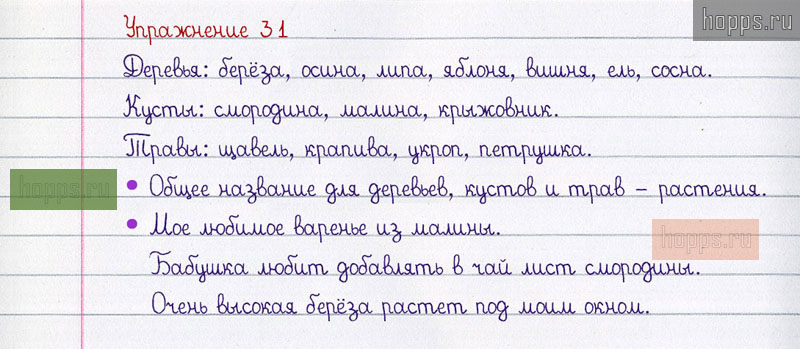 hopps.ru
Упражнение 31
Деревья: берёза, осина, липа, яблоня, вишня, ель, сосна.
Кусты: смородина, малина, крыжовник.
Травы: щавель, крапива, укроп, петрушка.
hopps.ru
• Общее название для деревьев, кустов и трав – растения.
• Мое любимое варенье из малины.
hopps.ru
Бабушка любит добавлять в чай лист смородины.
Очень высокая берёза растет под моим окном.